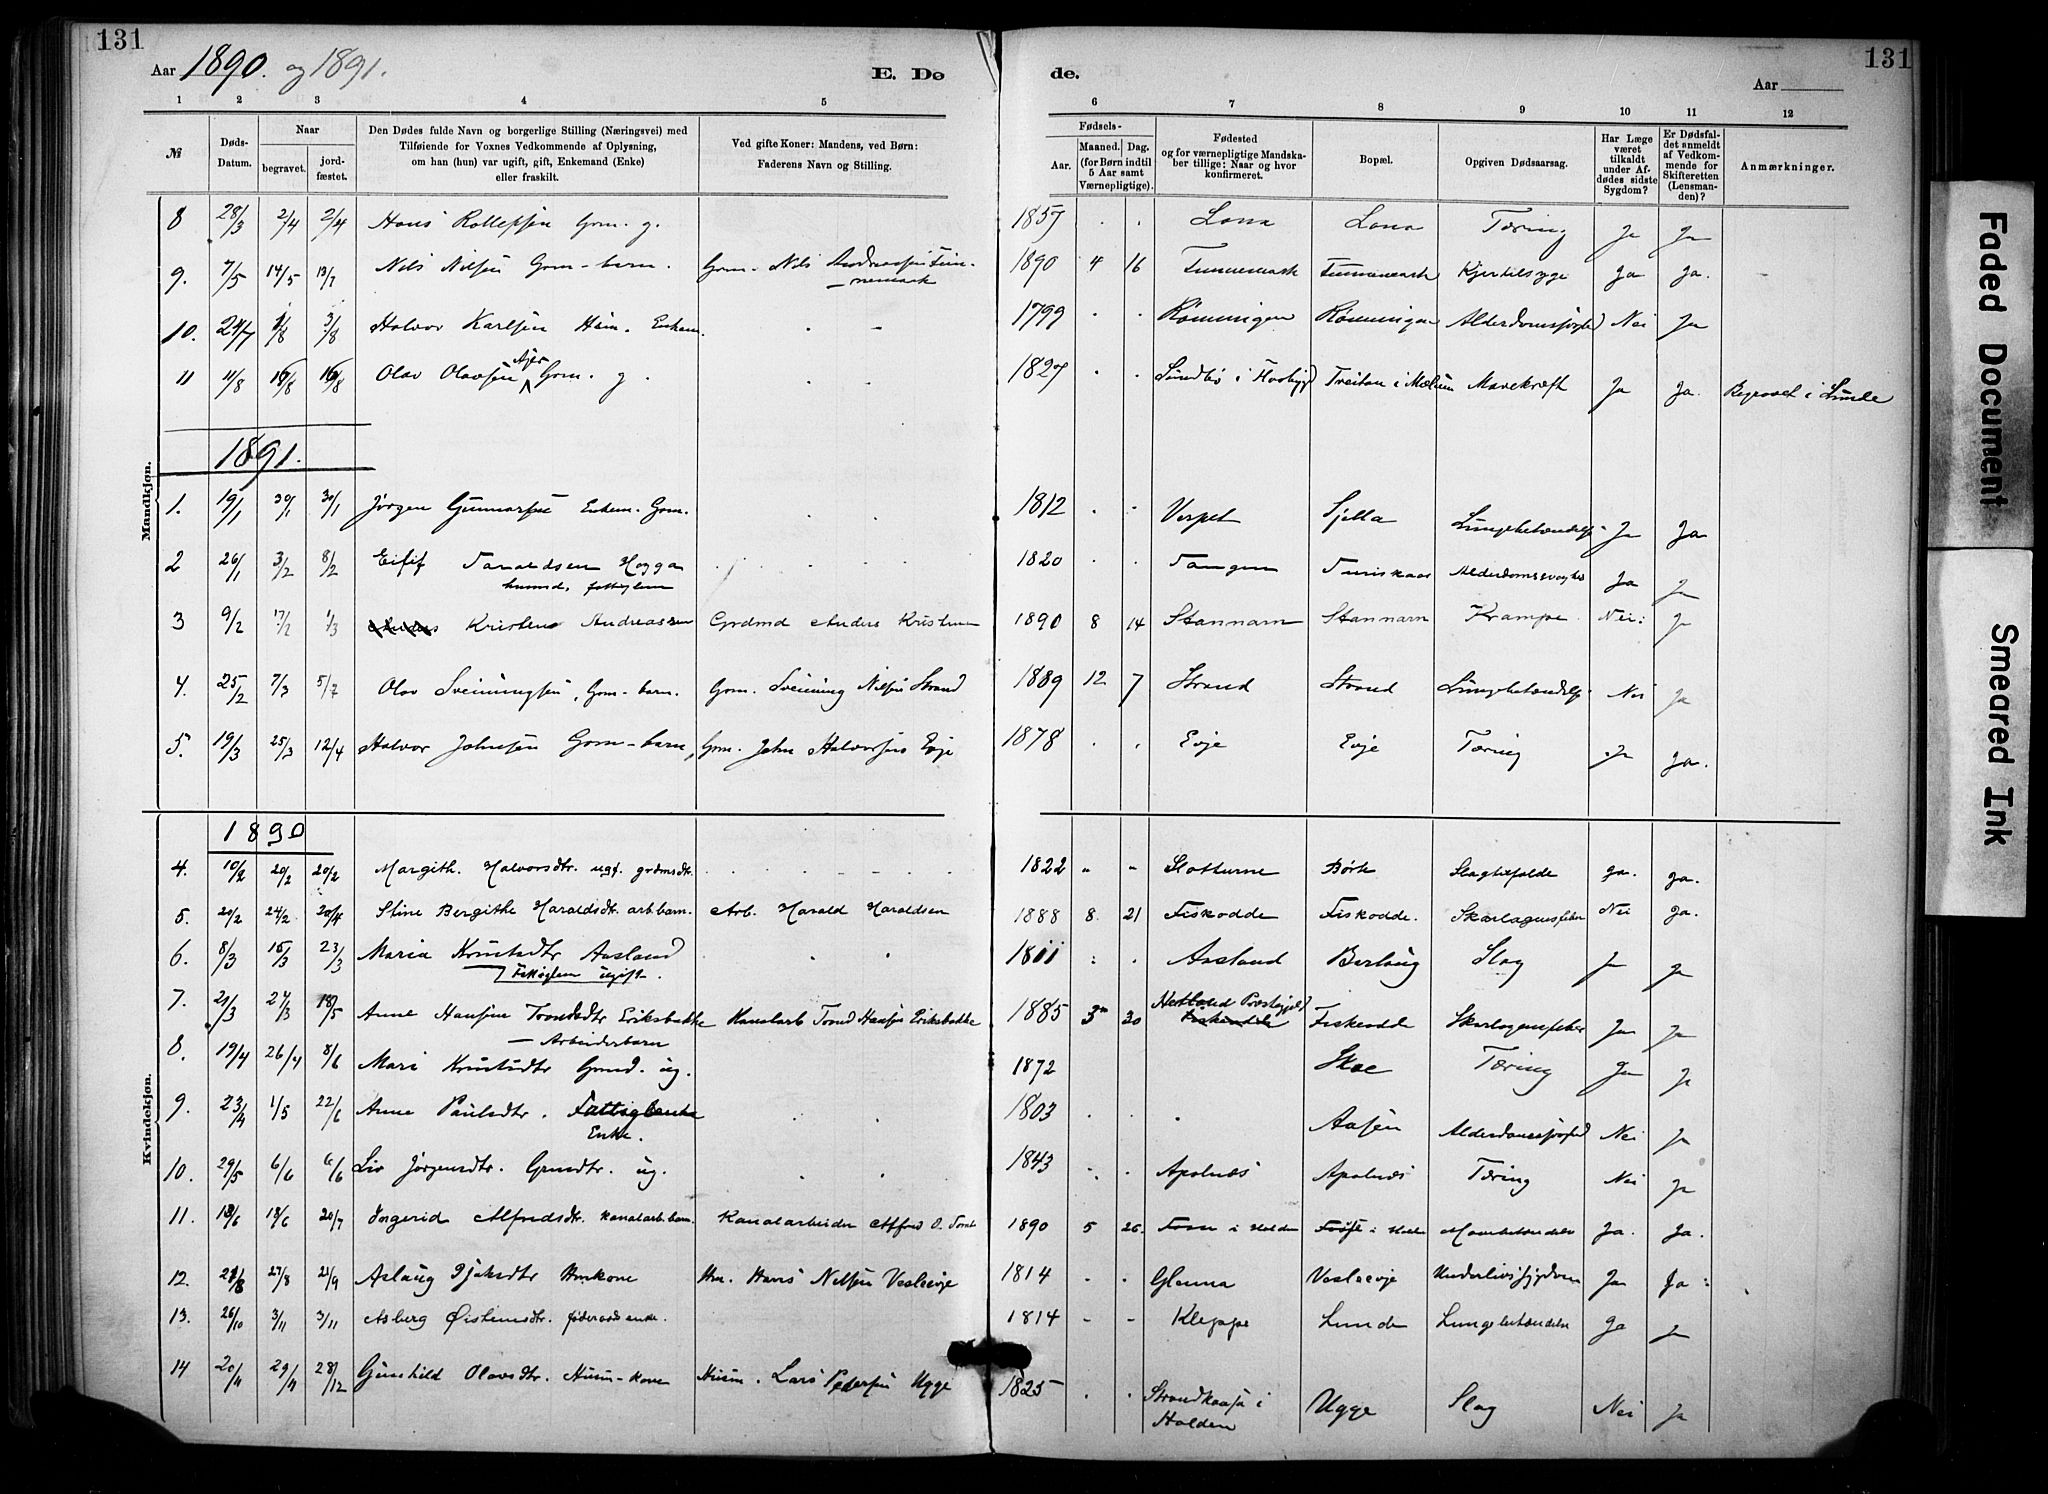 131
Aar 1890. og 1891.
E. Dø
de.
Aar
131
1 2 3 4 5 6 7 8 9 10 11 12
№
Døds-Datum.
Naar
begravet.
jord-fæstet.
Den Dødes fulde Navn og borgerlige Stilling (Næringsvei) med
Tilføiende for Voxnes Vedkommende af Oplysning,
om han (hun) var ugift, gift, Enkemand (Enke)
eller fraskilt.
Ved gifte Koner: Mandens, ved Børn:
Faderens Navn og Stilling.
Fødsels-
Aar.
Maaned. Dag.
(for Børn indtil
5 Aar samt
Værnepligtige).
Fødested
og for værnepligtige Mandska-
ber tillige: Naar og hvor
konfirmeret.
Bopæl.
Opgiven Dødsaarsag.
Har Læge
været
tilkaldt
under Af-
dødes sidste
Sygdom?
Er Dødsfal-
det anmeldt
af Vedkom-
mende for
Skifteretten
(Lensman-
den)?
Anmærkninger.
Mandkjøn.
8 28/3 2/4 2/4 Hans Rollefsen Grm. g. 1857 Lona Lona Tæring Ja Ja
9. 7/5 14/5 13/7 Nils Nilsen Grm-barn. Grm. Nils 1890 4 16 Kjertelsyge Ja Ja.
10. 1/8 3/8 Halvor Karlsen Húm. Enkem. 1799 Rønningen Rønningen Nei Ja
11 11/8 16/8 16/8 Olav Olavsen Grm. g. 1827 Mavekræft Ja Ja. Begravet i Lunde
1891.
1. 19/1 30/1 30/1 Jørgen Gunnarsen Enkem. Grm. 1812 Verpet Lungebetændelse Ja Ja
2 26/1 3/2 8/2 Taraldsen Hogga 1820 Tangen Ja Ja
husmd. fattiglem
3 9/2 17/2 1/3 Kristen Andreassen Grdmd Anders Kristensen 1890 8 14 Stannarn Stannarn Krampe. Nei. Ja
4. 25/2 7/3 5/7 Olav Sveinungsen, Grm-barn. Grm. Sveinung Nilsen Strand 1889 12 7 Strand Strand Lungebetændelse Nei Ja
5. 19/3 25/3 12/4 Halvor Johnsen Grm-barn, Grm. John Halvorsen Evje 1878 Evje Evje Tæring Ja Ja.
Kvindekjøn.
1890
4. 10/2 20/2 20/2 Margith. Halvorsdtr. ugt. grdmsdtr. 1822 Slotturne Børte Slagtilfælde ja. Ja.
5. 20/2 24/2 20/4 Stine Bergithe Haraldsdtr. arb.barn. Arb. Harald Haraldsen 1888 8. 21 Fiskodde Fiskodde. Skarlagensfeber Nei Ja.
6. 8/3 15/3 23/3 Maria Knutsdtr Aasland 1811 Aasland Slag Ja Ja
ugift.
7. 21/3 27/3 18/5 Anne Hansine Trondsdtr Eriksbakke Kanalarb Trond Hansen Eriksbakke 1885 3 30 Fiskeodde Skarlagensfeber Ja Ja
Arbeiderbarn
8. 19/4 26/4 8/6 Mari Knutsdtr ug. 1872 Skoe Tæring Ja Ja
9. 23/4 1/5 22/6 Anne Paulsdtr. 1803 Aasen Nei Ja
Enke.
10. 29/5 6/6 6/6 Liv Jørgensdtr. ug. 1843 Apalnæs Apalnæs Tæring Nei Ja
11. 13/6 18/6 20/7 Ingerid Alfredsdtr. kanalarb.barn. Kanalarbeider Alfred O. 1890 5 26. Ja. Ja.
12. 27/8 21/9 Aslaug Hmkone Hm. Hans Nilsen Vesleevje 1814 Glenna Vesleevje Ja Ja
13. 26/10 3/11 3/11 Asberg Øisteinsdtr. føderaadsenke. 1814 Kleppe Lunde Lungebetændelse Ja Ja
14 20/11 29/11 28/12 Gunhild Olavsdtr. Húsm-kone Húsm. Lars Pedersen Ugge 1825 Strandkaasa i Ugge Slag Nei Ja
Holden
Faded Document
Smeared Ink